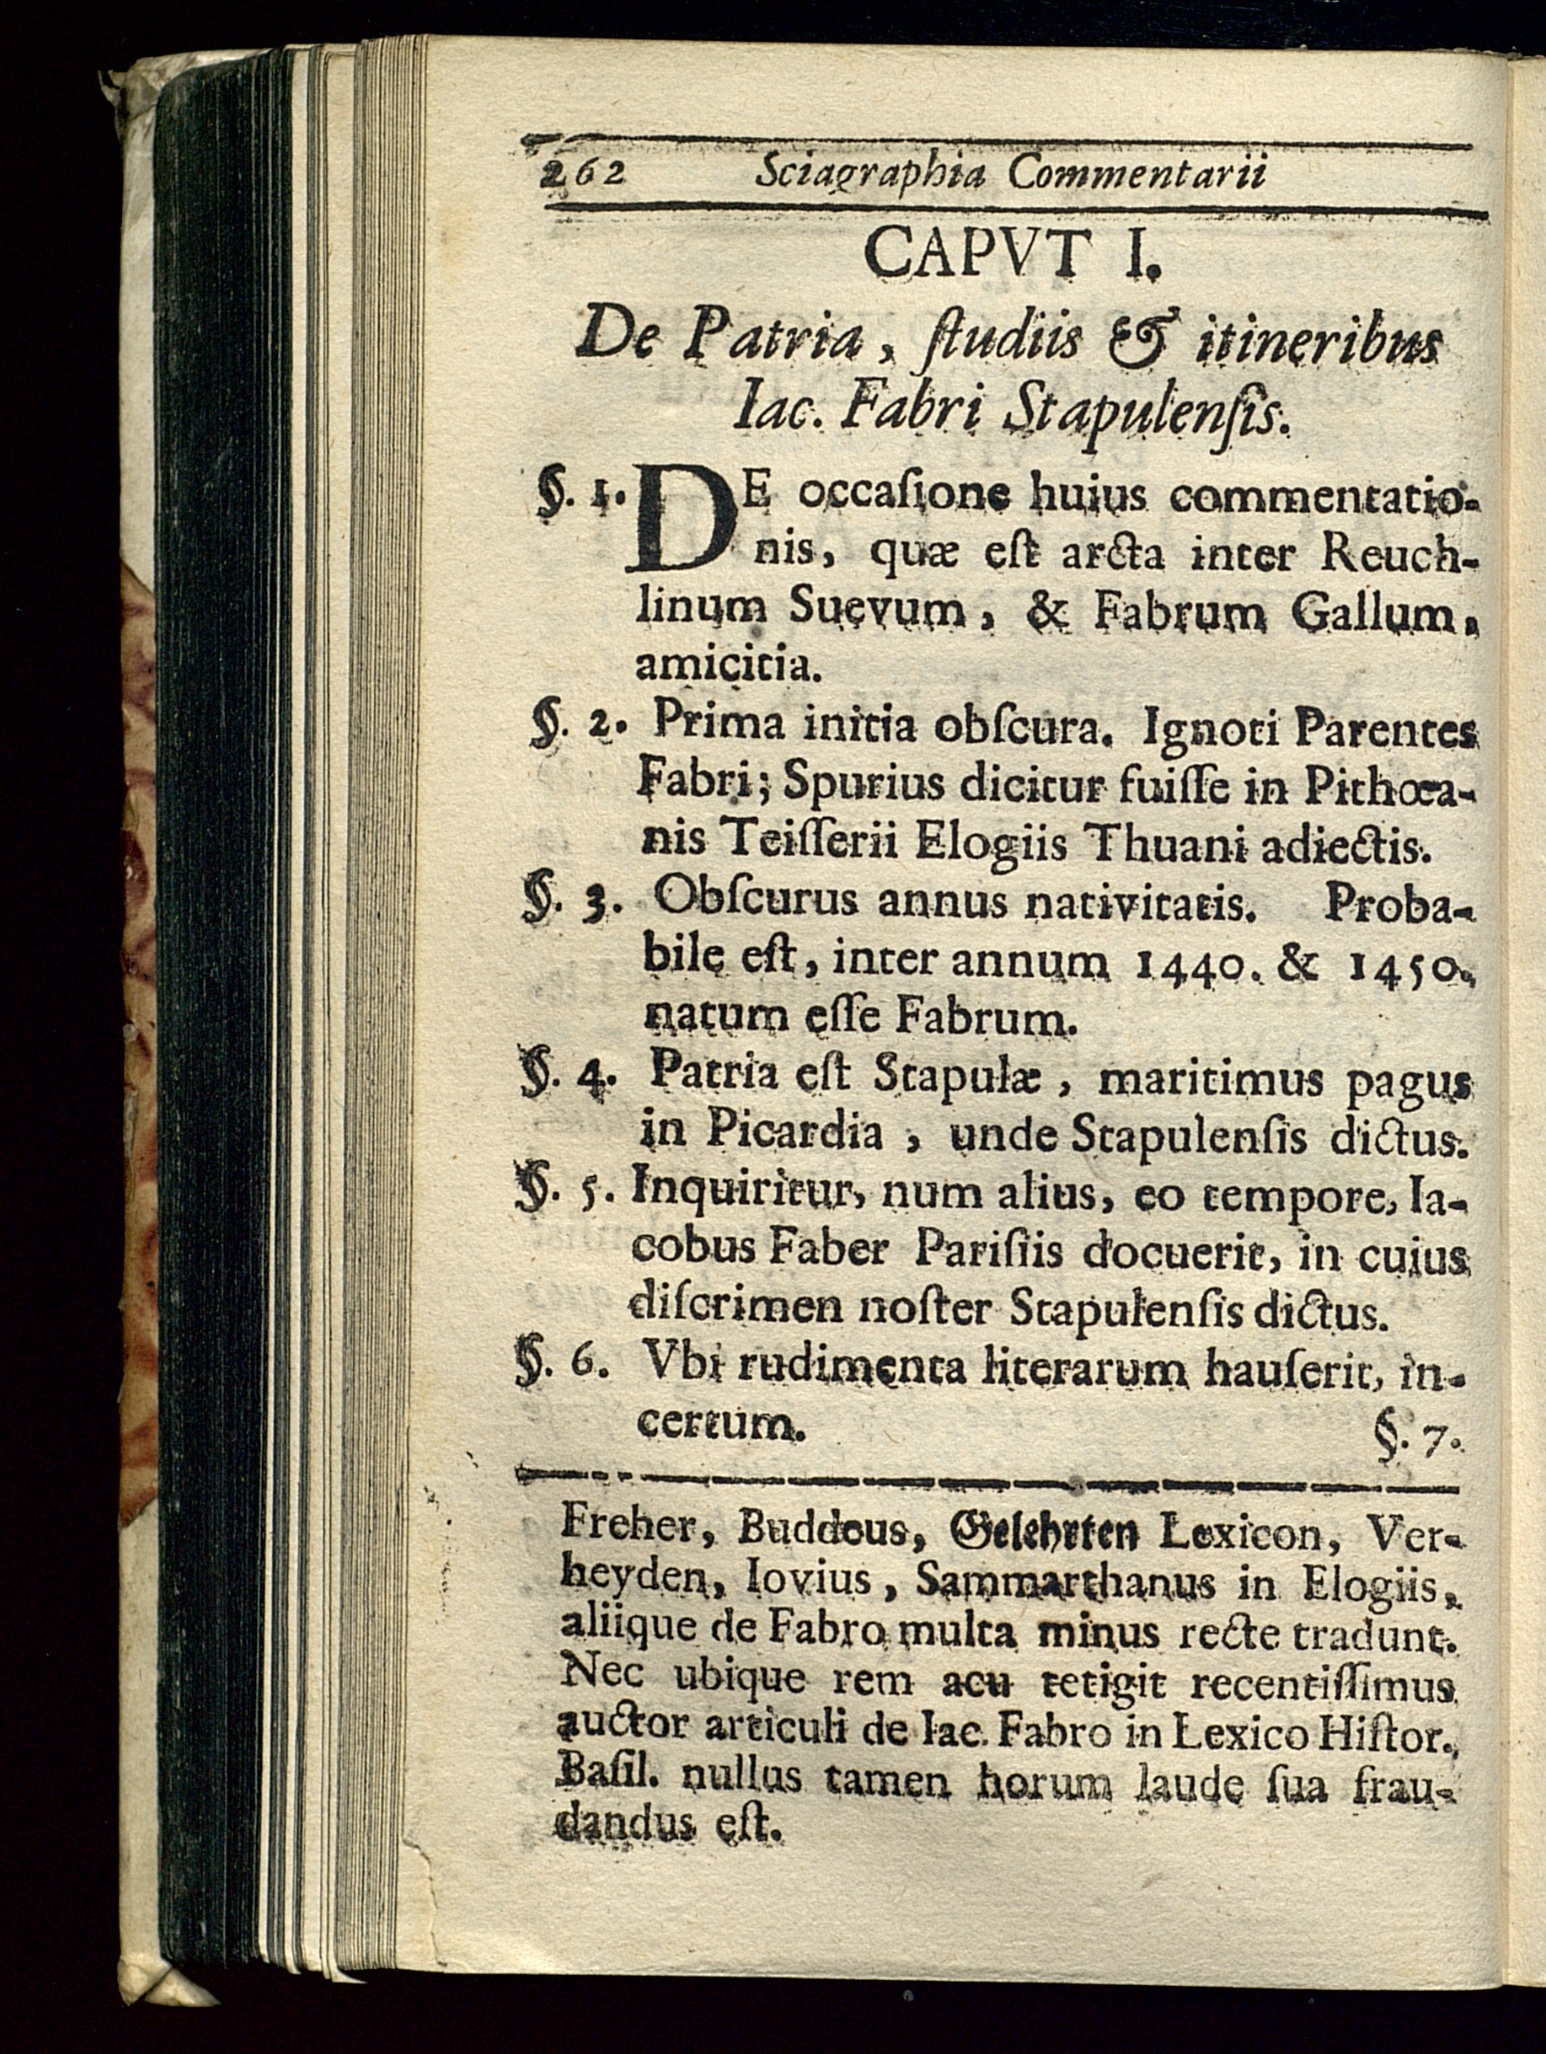 262 Sciagraphia Commentarii
CAPVT I.
De Patria, ſtudiis & itineribus
Iac. Fabri Stapulenſis.
§. 1. DE occaſione huius commentatio-
nis, quæ eſt arcta inter Reuch-
linum Suevum, & Fabrum Gallum,
amicitia.
§. 2. Prima initia obſcura. Ignoti Parentes
Fabri; Spurius dicitur fuiſſe in Pithœa-
nis Teiſſerii Elogiis Thuani adiectis.
§. 3. Obſcurus annus nativitatis. Proba-
bile eſt, inter annum 1440. & 1450.
natum eſſe Fabrum.
§. 4. Patria eſt Stapulæ, maritimus pagus
in Picardia, unde Stapulenſis dictus.
§. 5. Inquiritur, num alius, eo tempore, Ia-
cobus Faber Pariſiis docuerit, in cuius
diſcrimen noſter Stapulenſis dictus.
§. 6. Vbi rudimenta literarum hauſerit, in-
certum. §. 7.
Freher, Buddeus, Gelehrten Lexicon, Ver-
heyden, Iovius, Sammarthanus in Elogiis,
aliique de Fabro multa minus recte tradunt.
Nec ubique rem acu tetigit recentiſſimus
auctor articuli de Iac. Fabro in Lexico Hiſtor.
Baſil. nullus tamen horum laude ſua frau-
dandus eſt.